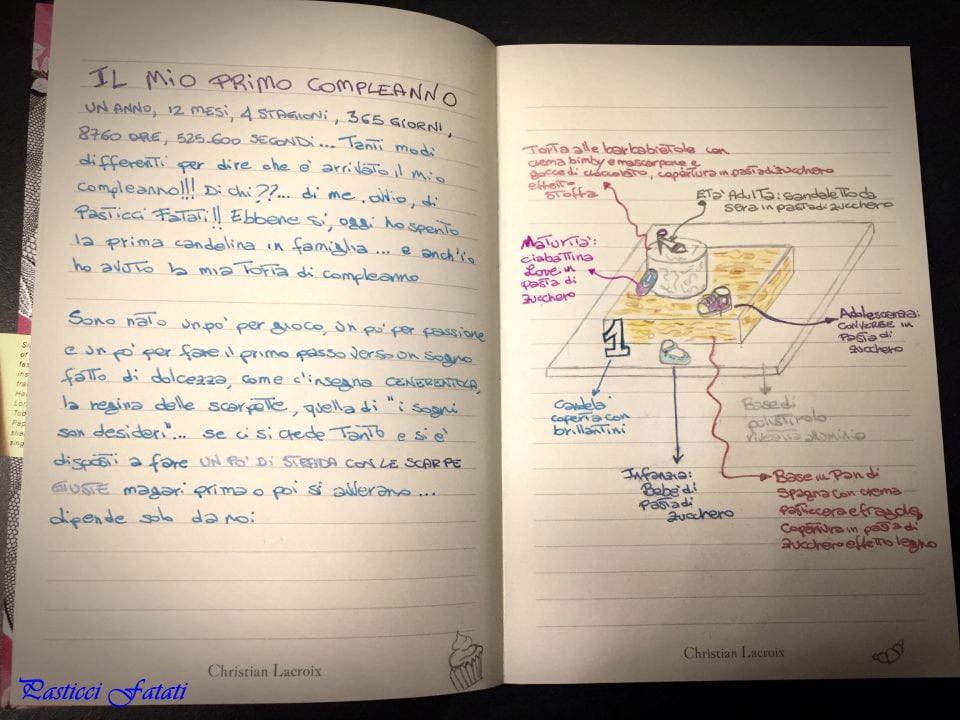 IL MIO PRIMO COMPLEANNO
UN ANNO, 12 MESI, 4 STAGIONI, 365 GIORNI,
8760 ORE, 525.600 SECONDI... Tanti modi
differenti per dire che è arrivato il mio
compleanno!!! Di chi??... di me, ovvio, di
Pasticci Fatati!! Ebbene sì, oggi ho spento
la prima candelina in famiglia... e anch'io
ho avuto la mia torta di compleanno
Sono nato un po' per gioco, un po' per passione
e un po' per fare il primo passo verso un sogno
fatto di dolcezza, come c'insegna CENERENTOLA,
la regina delle scarpette, quella di "i sogni
son desideri"... se ci si crede tanto e si è
disposti a fare UN PO' DI STRADA CON LE SCARPE
GIUSTE magari prima o poi si avverano...
dipende solo da noi
Christian Lacroix
Torta alle barbabietole con
crema bimby e mascarpone e
gocce di cioccolato, copertura in pasta di zucchero
effetto
stoffa
Età Adulta: sandaletto da
sera in pasta di zucchero
Maturità:
ciabattina
Love in
pasta di
zucchero
Adolescenza:
CONVERSE in
Pasta di
zucchero
1
Candela
coperta con
brillantini
Base di
polistirolo
rivestita alluminio
Infanzia:
Bebè di
Pasta di
zucchero
Base in Pan di
Spagna con crema
pasticcera e fragole,
Copertura in pasta di
zucchero effetto legno
Christian Lacroix
Pasticci Fatati